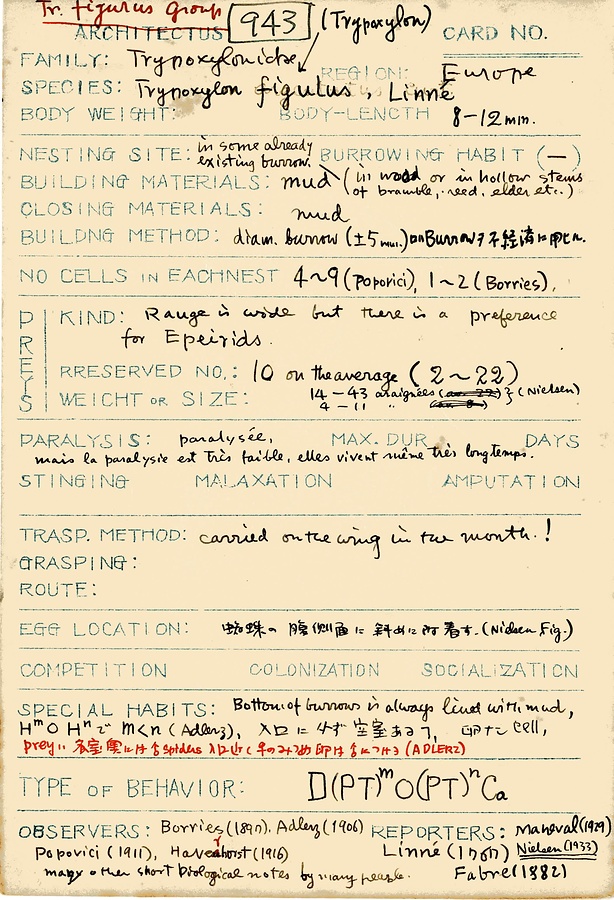 Tr. figurus Group
ARCHITECTUS 943 (Trypoxylon) CARD NO.
FAMILY: Trypoxylonidae
REGION: Europe
SPECIES: Trypoxylon figulus, Linné
BODY WEIGHT: BODY-LENGTH 8-12 mm.
NESTING SITE: in some already existing burrow. BURROWING HABIT (—)
BUILDING MATERIALS: mud (in wood or in hollow stems of bramble, reed, elder etc.)
CLOSING MATERIALS: mud
BUILDNG METHOD: diam. burrow (±5 mm.) on Burrow
NO CELLS IN EACHNEST 4~9 (Popovici), 1~2 (Borries),
PREYS
KIND: Range is wide but there is a preference
for Epeirids.
RRESERVED NO.: 10 on the average (2~22)
WEIGHT OR SIZE: 14-43 araignées (Nielsen)
4-11 〃
PARALYSIS: paralysée, MAX. DUR. DAYS
mais la paralysie est très faible, elles vivent même très longtemps.
STINGING MALAXATION AMPUTATION
TRASP. METHOD: carried on the wing in the mouth.!
GRASPING:
ROUTE:
EGG LOCATION: 蜘蛛の腹側面に斜めに附着す. (Nielsen Fig.)
COMPETITION COLONIZATION SOCIALIZATION
SPECIAL HABITS: Bottom of burrows is always lined with mud,
HᵐOHⁿ m<n (Adlerz), 入口に必ず空室ある
prey (ADLERZ)
TYPE OF BEHAVIOR: D(PT)ᵐO(PT)ⁿCa
OBSERVERS: Borries (1897), Adlerz (1906) REPORTERS: Maneval (1929)
Popovici (1911), Havenhorst (1916) Linné (1767) Nielsen (1933)
many other short biological notes by many people. Fabre (1882)